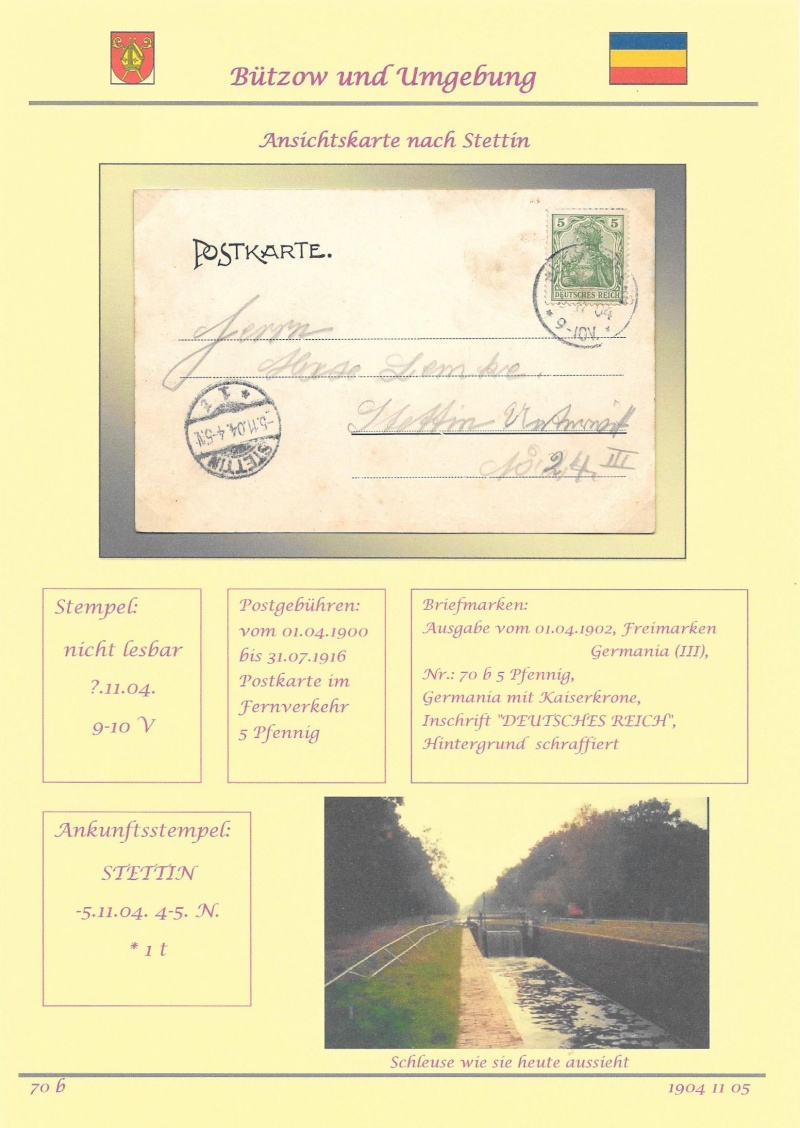 Bützow und Umgebung
Ansichtskarte nach Stettin
POSTKARTE.
5 5
DEUTSCHES REICH
04
* 9-10V. *
Herrn
Lemke.
Stettin
No. 24. III
* 1 t
-5.11.04.4-5N.
STETTIN
Stempel:
nicht lesbar
?.11.04.
9-10 V
Postgebühren:
vom 01.04.1900
bis 31.07.1916
Postkarte im
Fernverkehr
5 Pfennig
Briefmarken:
Ausgabe vom 01.04.1902, Freimarken
Germania (III),
Nr.: 70 b 5 Pfennig,
Germania mit Kaiserkrone,
Inschrift "DEUTSCHES REICH",
Hintergrund schraffiert
Ankunftsstempel:
STETTIN
-5.11.04. 4-5. N.
* 1 t
Schleuse wie sie heute aussieht
70 b
1904 11 05